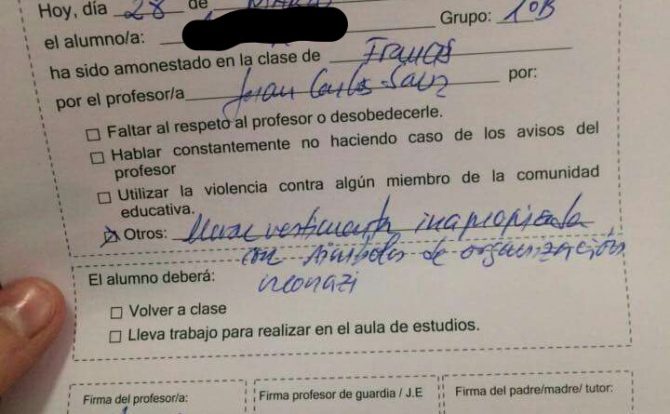 Hoy, día 28 de MARZO
el alumno/a: Grupo: 1ºB
ha sido amonestado en la clase de Francés
por el profesor/a Juan Carlos Sanz por:
☐ Faltar al respeto al profesor o desobedecerle.
☐ Hablar constantemente no haciendo caso de los avisos del
profesor
☐ Utilizar la violencia contra algún miembro de la comunidad
educativa.
☒ Otros: llevar vestimenta inapropiada
con símbolos de organización
neonazi
El alumno deberá:
☐ Volver a clase
☐ Lleva trabajo para realizar en el aula de estudios.
Firma del profesor/a: Firma profesor de guardia / J.E Firma del padre/madre/ tutor: